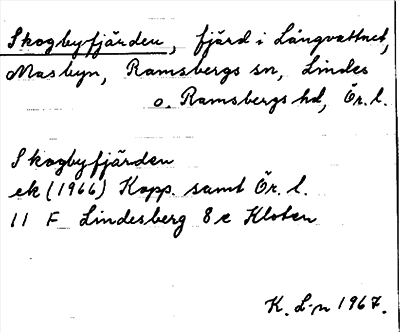 Skogbyfjärden, fjärd i Långvattnet,
Masbyn, Ramsbergs sn, Lindes
o. Ramsbergs hd, Ör. l.
Skogbyfjärden
ek (1966) Kopp. samt Ör. l.
11 F Lindesberg 8 e Kloten
K. L-n 1967.